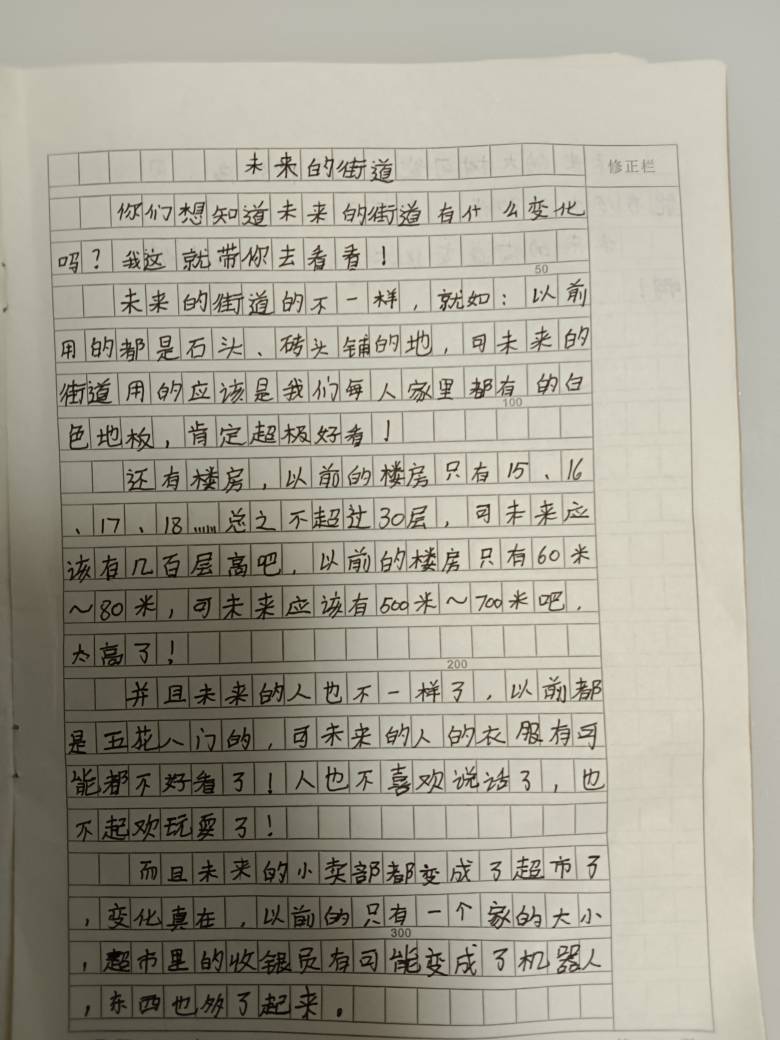 未来的街道
修正栏
你们想知道未来的街道有什么变化
吗？我这就带你去看看！
50
未来的街道的不一样，就如：以前
用的都是石头、砖头铺的地，可未来的
街道用的应该是我们每人家里都有的白
100
色地板，肯定超极好看！
还有楼房，以前的楼房只有15、16
、17、18……总之不超过30层，可未来应
该有几百层高吧，以前的楼房只有60米
～80米，可未来应该有500米～700米吧，
太高了！
200
并且未来的人也不一样了，以前都
是五花八门的，可未来的人的衣服有可
能都不好看了！人也不喜欢说话了，也
不起欢玩耍了！
而且未来的小卖部都变成了超市了
，变化真在，以前的只有一个家的大小
300
，超市里的收银员有可能变成了机器人
，东西也多了起来。